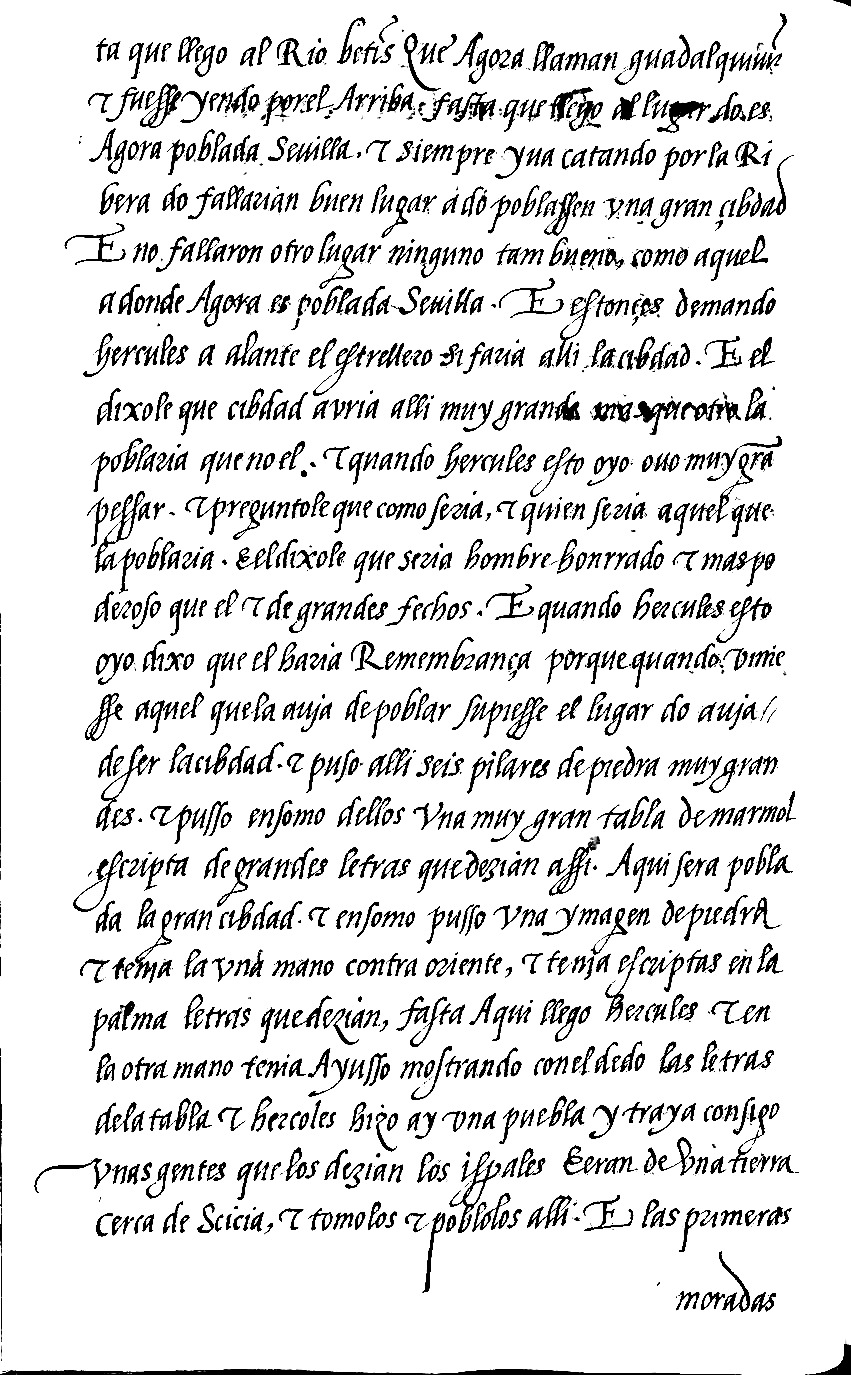 ta que llego al Rio betis Que Agora llaman guadalquiuir
τ fuesse yendo por el Arriba. fasta que llego al lugar do es
Agora poblada Sevilla. τ siempre yua catando por la Ri
bera do fallarian buen lugar a dó poblassen vna gran çibdad
E no fallaron otro lugar ninguno tam bueno, como aquel
a donde Agora es poblada Sevilla. E estonçes demando
hercules a alante el estrellero si faria alli la cibdad. E el
dixole que cibdad avria alli muy grande mas que otro la
poblaria que no el. τ quando hercules esto oyo ouo muy grā
pessar. τ preguntole que como seria, τ quien seria aquel que
la poblaria. E el dixole que seria hombre honrrado τ mas po
deroso que el τ de grandes fechos. E quando hercules esto
oyo dixo que el haria Remembrança porque quando vinie
sse aquel que la auja de poblar supiesse el lugar do auja //
de ser la cibdad. τ puso alli seis pilares de piedra muy gran
des. τ pusso ensomo dellos vna muy gran tabla de marmol
escripta de grandes letras que dezian assi. Aqui sera pobla
da la gran cibdad. τ ensomo pusso vna ymagen de piedra
τ tenja la vna mano contra oriente, τ tenja escriptas en la
palma letras que dezian, fasta Aqui llego Hercules τ en
la otra mano tenia Ayusso mostrando con el dedo las letras
de la tabla τ hercoles hizo ay vna puebla y traya consigo
vnas gentes que los dezian los ispales E eran de vna tierra
cerca de Scicia, τ tomolos τ poblolos alli. E las primeras
moradas